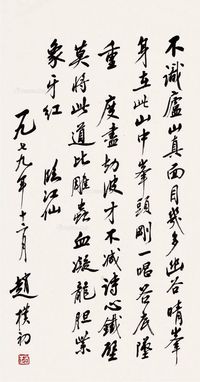 不識廬山真面目幾多幽谷晴峯
身在此山中峯頭剛一唱谷底墜
重 度盡劫波才不减詩心鐵壁
莫將此道比雕蟲血凝龍胆紫
象牙紅 臨江仙
一九七九年十二月
趙樸初